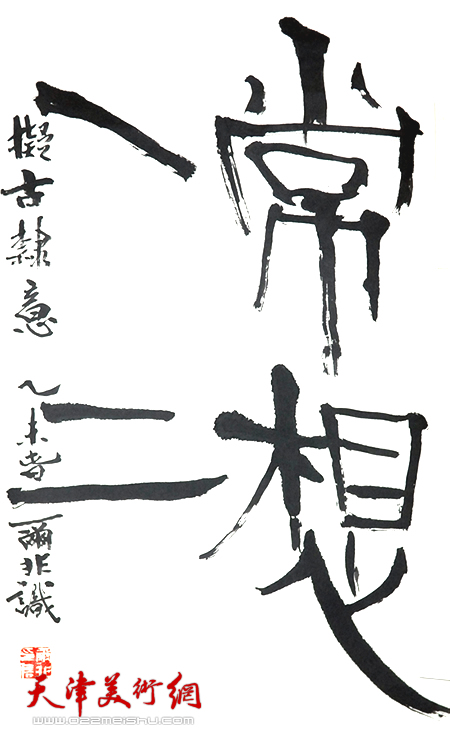 常想
一二
擬古隸意 乙未春 爾非識
天津美術網
www.022meishu.com